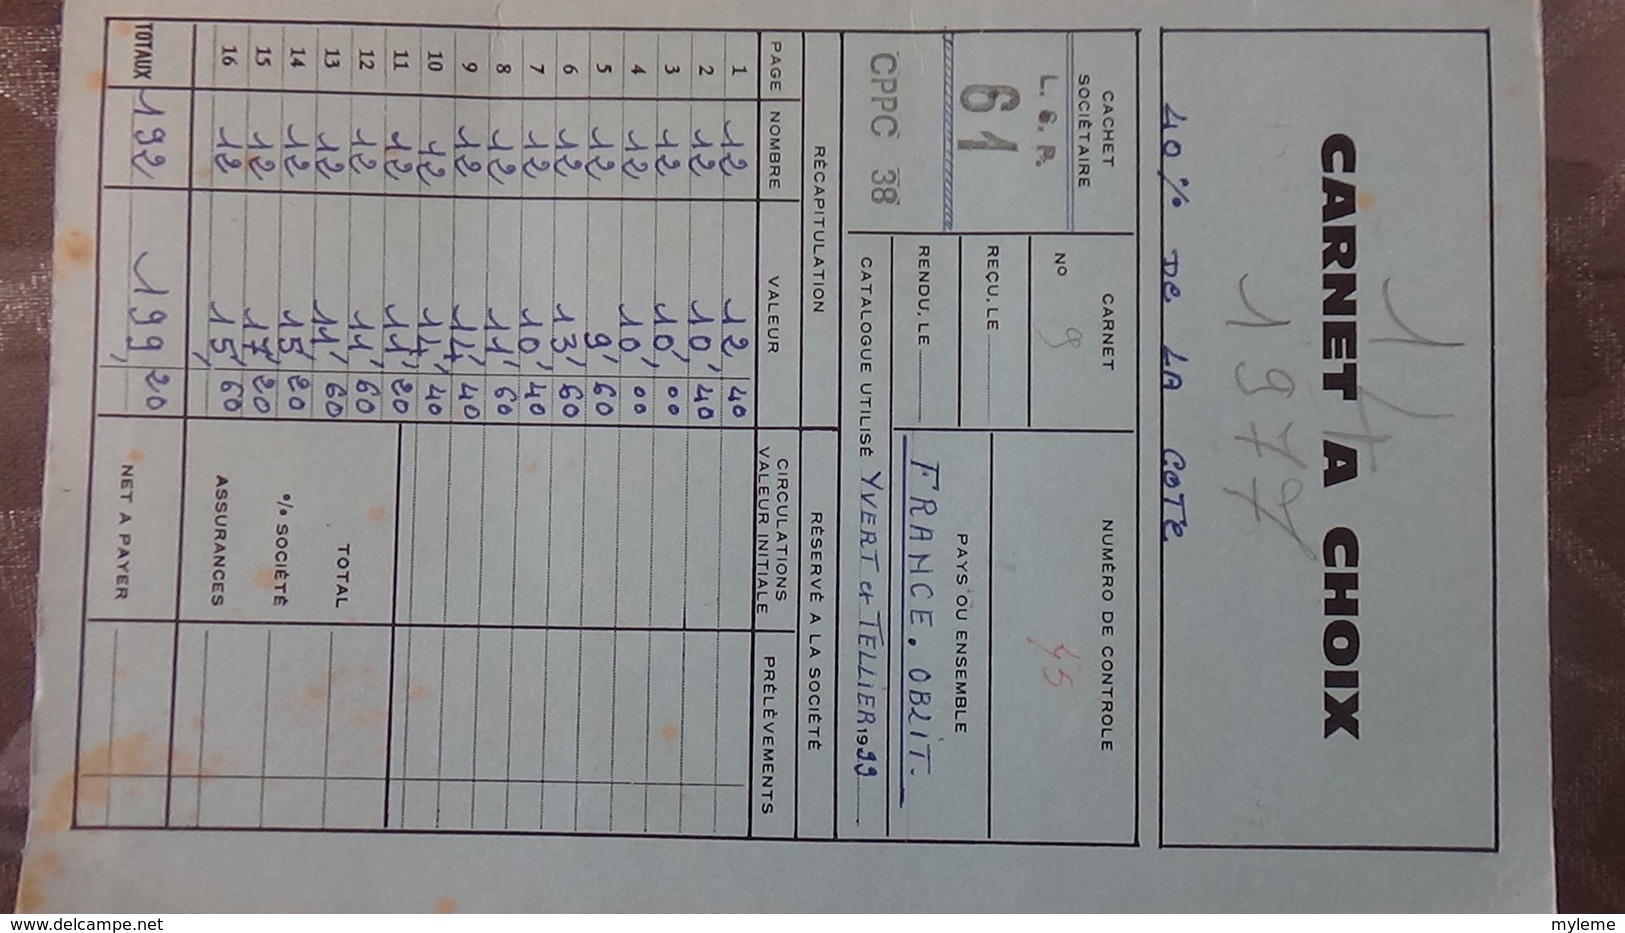 11
CARNET A CHOIX
1977
40 % DE LA COTE
CACHET SOCIÉTAIRE
L. S. R.
61
CPPC 38
CARNET
Nº 9
REÇU, LE
RENDU, LE
NUMÉRO DE CONTROLE
45
PAYS OU ENSEMBLE
FRANCE. OBLIT.
CATALOGUE UTILISÉ YVERT et TELLIER 1999
RÉCAPITULATION RÉSERVÉ A LA SOCIÉTÉ
PAGE NOMBRE VALEUR CIRCULATIONS VALEUR INITIALE PRÉLÈVEMENTS
1 12 12, 40
2 12 10, 40
3 12 10, 00
4 12 10, 00
5 12 9, 60
6 12 13, 60
7 12 10, 40
8 12 11, 60
9 12 14, 40
10 12 14, 40
11 12 11, 20
12 12 11, 60
13 12 11, 60 TOTAL
14 12 15, 20
15 12 17, 20 % SOCIÉTÉ
16 12 15, 60 ASSURANCES
TOTAUX 192 199, 20 NET A PAYER
© www.delcampe.net
myleme